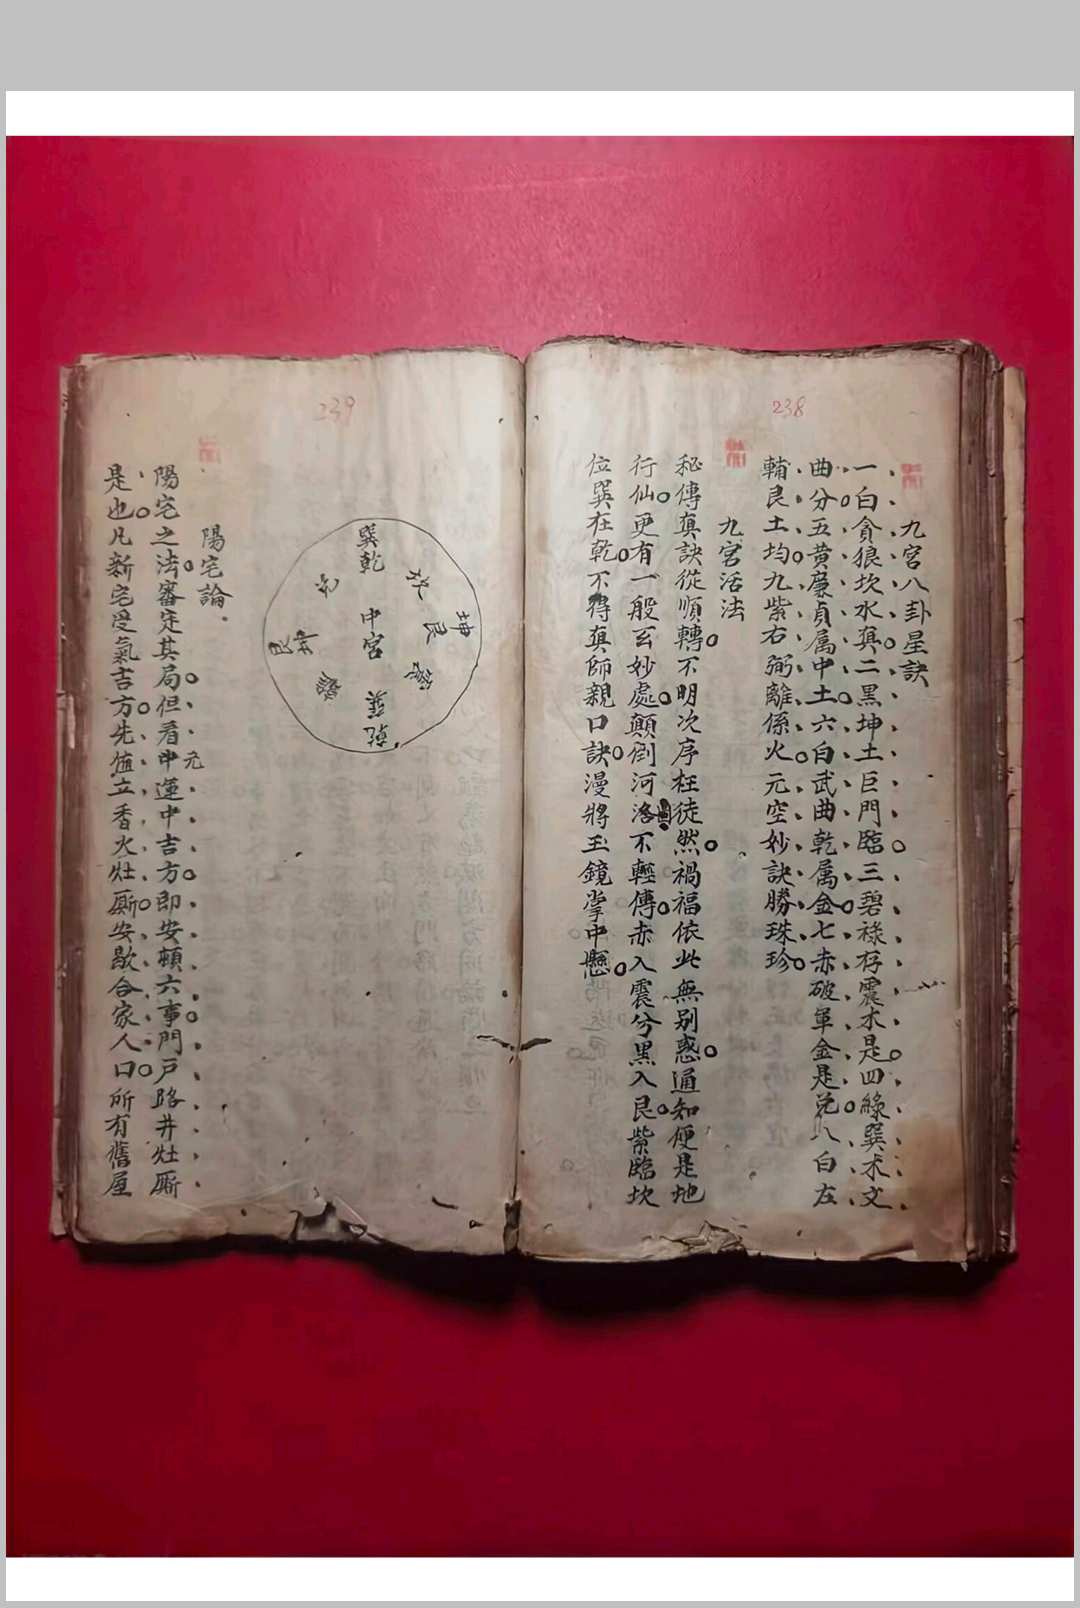 238
九宮八卦星訣
一白貪狼坎水真二黑坤土巨門臨三碧祿存震木是四綠巽木文
曲分五黄廉貞属中土六白武曲乾属金七赤破軍金是兑八白左
輔艮土均九紫右弼離係火元空妙訣勝珠珍
九宮活法
秘傳真訣從順轉不明次序枉徒然禍福依此無别惑通知便是地
行仙更有一般玄妙處顛倒河洛圖不輕傳赤入震兮黑入艮紫臨坎
位巽在乾不得真師親口訣漫將玉鏡掌中懸
239
巽乾
坤艮
中宮
坤艮
巽乾
陽宅論
陽宅之法審定其局但看中元運中吉方即安頓六事門戸路井灶厮
是也凡新宅受氣吉方先值立香火灶厮安歇合家人口所有舊屋